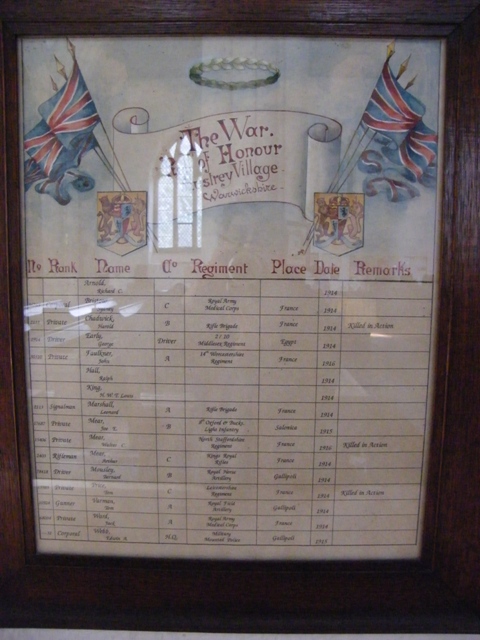 The War.
of Honour
Village
Warwickshire.
No Rank Name Co Regiment Place Date Remarks
Arnold, Richard C. 1914
C Royal Army Medical Corps France 1914
Private Chadwick, Harold B Rifle Brigade France 1914 Killed in Action
Driver Early, George Driver Middlesex Regiment Egypt 1914
Private Faulkner, John A 14th Worcestershire Regiment France 1916
Hall, Ralph 1914
King, 1914
Signalman Marshall, Leonard A Rifle Brigade France 1914
Private Mear, B Oxford & Bucks. Light Infantry Salonica 1915
Private Mear, North Staffordshire Regiment France 1916 Killed in Action
Rifleman Mear, C Kings Royal Rifles France 1914
Driver Moseley, Bernard B Royal Horse Artillery Gallipoli 1914
Private C Gloucestershire Regiment France 1914 Killed in Action
Gunner Tom A Royal Field Artillery Gallipoli 1914
Private Ward, Jack A Royal Army Medical Corps France 1914
Corporal Webb, H.Q. Military Gallipoli 1915